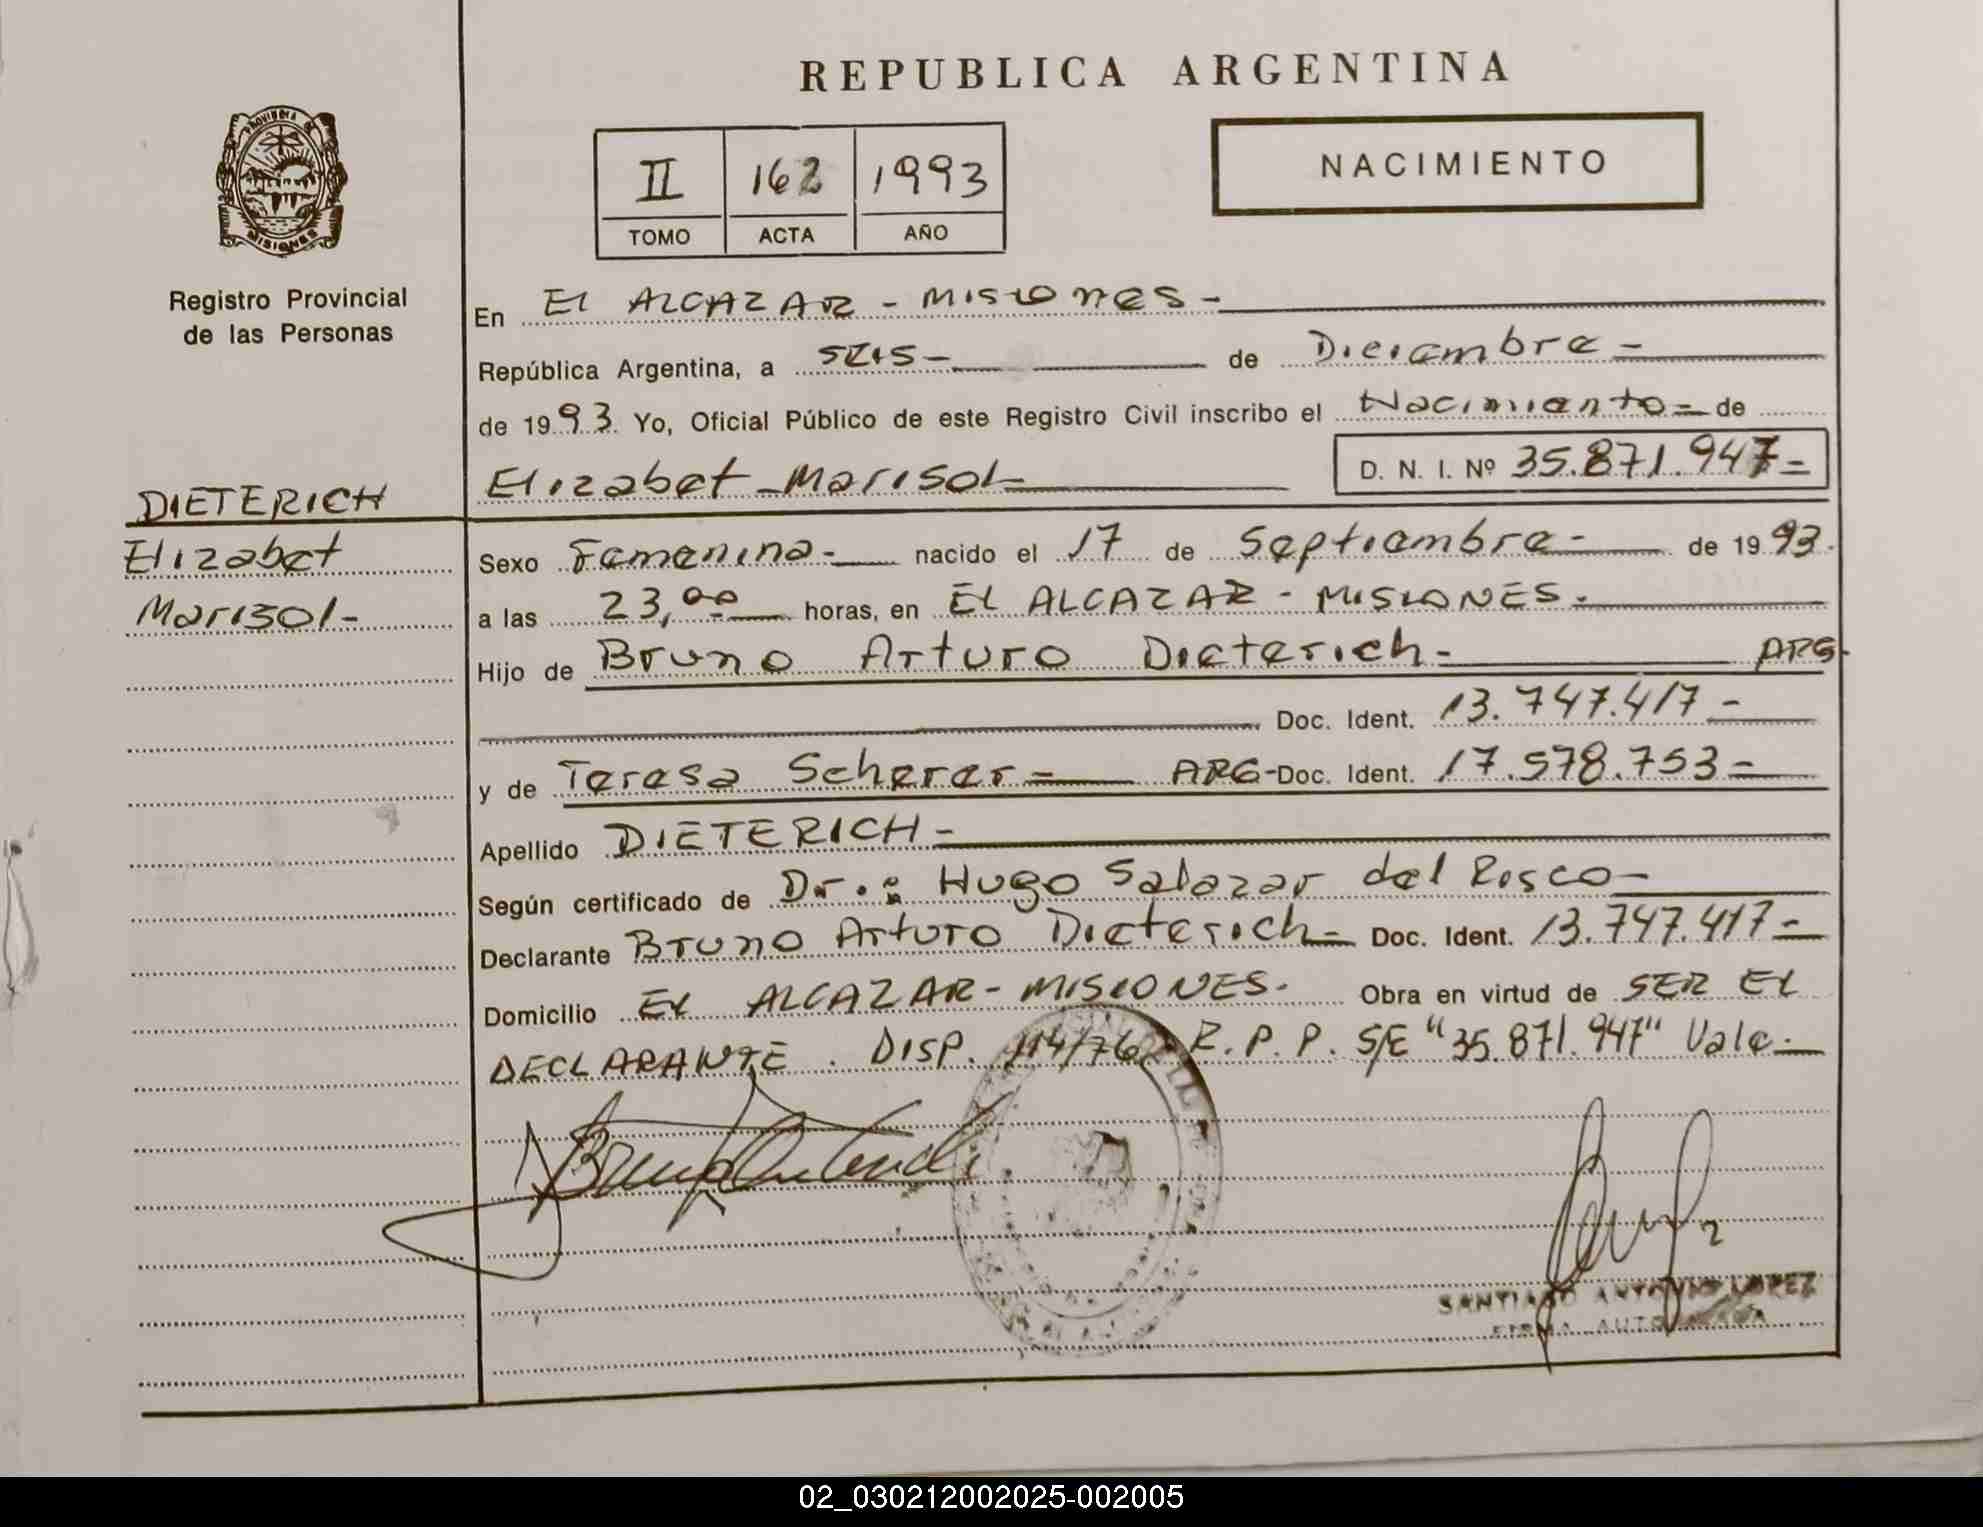 REPUBLICA ARGENTINA
NACIMIENTO
II 162 1993
TOMO ACTA AÑO
PROVINCIA DE
MISIONES
Registro Provincial
de las Personas
En EL ALCAZAR - MISIONES -
República Argentina, a SEIS - de Diciembre -
de 1993. Yo, Oficial Público de este Registro Civil inscribo el Nacimiento - de
Elizabet Marisol - D. N. I. Nº 35.871.947 -
DIETERICH
Elizabet
Marisol -
Sexo Femenino - nacido el 17 de Septiembre - de 1993.
a las 23,00 horas, en EL ALCAZAR - MISIONES -
Hijo de Bruno Arturo Dieterich - ARG -
Doc. Ident. 13.747.417 -
y de Teresa Scherer - ARG - Doc. Ident. 17.578.753 -
Apellido DIETERICH -
Según certificado de Dr.: Hugo Salazar del Risco -
Declarante Bruno Arturo Dieterich - Doc. Ident. 13.747.417 -
Domicilio EL ALCAZAR - MISIONES - Obra en virtud de SER EL
DECLARANTE. DISP. 114/76 R.P.P. S/E "35.871.947" Vale -
SANTIAGO ANTONIO LOPEZ
FIRMA AUTORIZADA
02_030212002025-002005